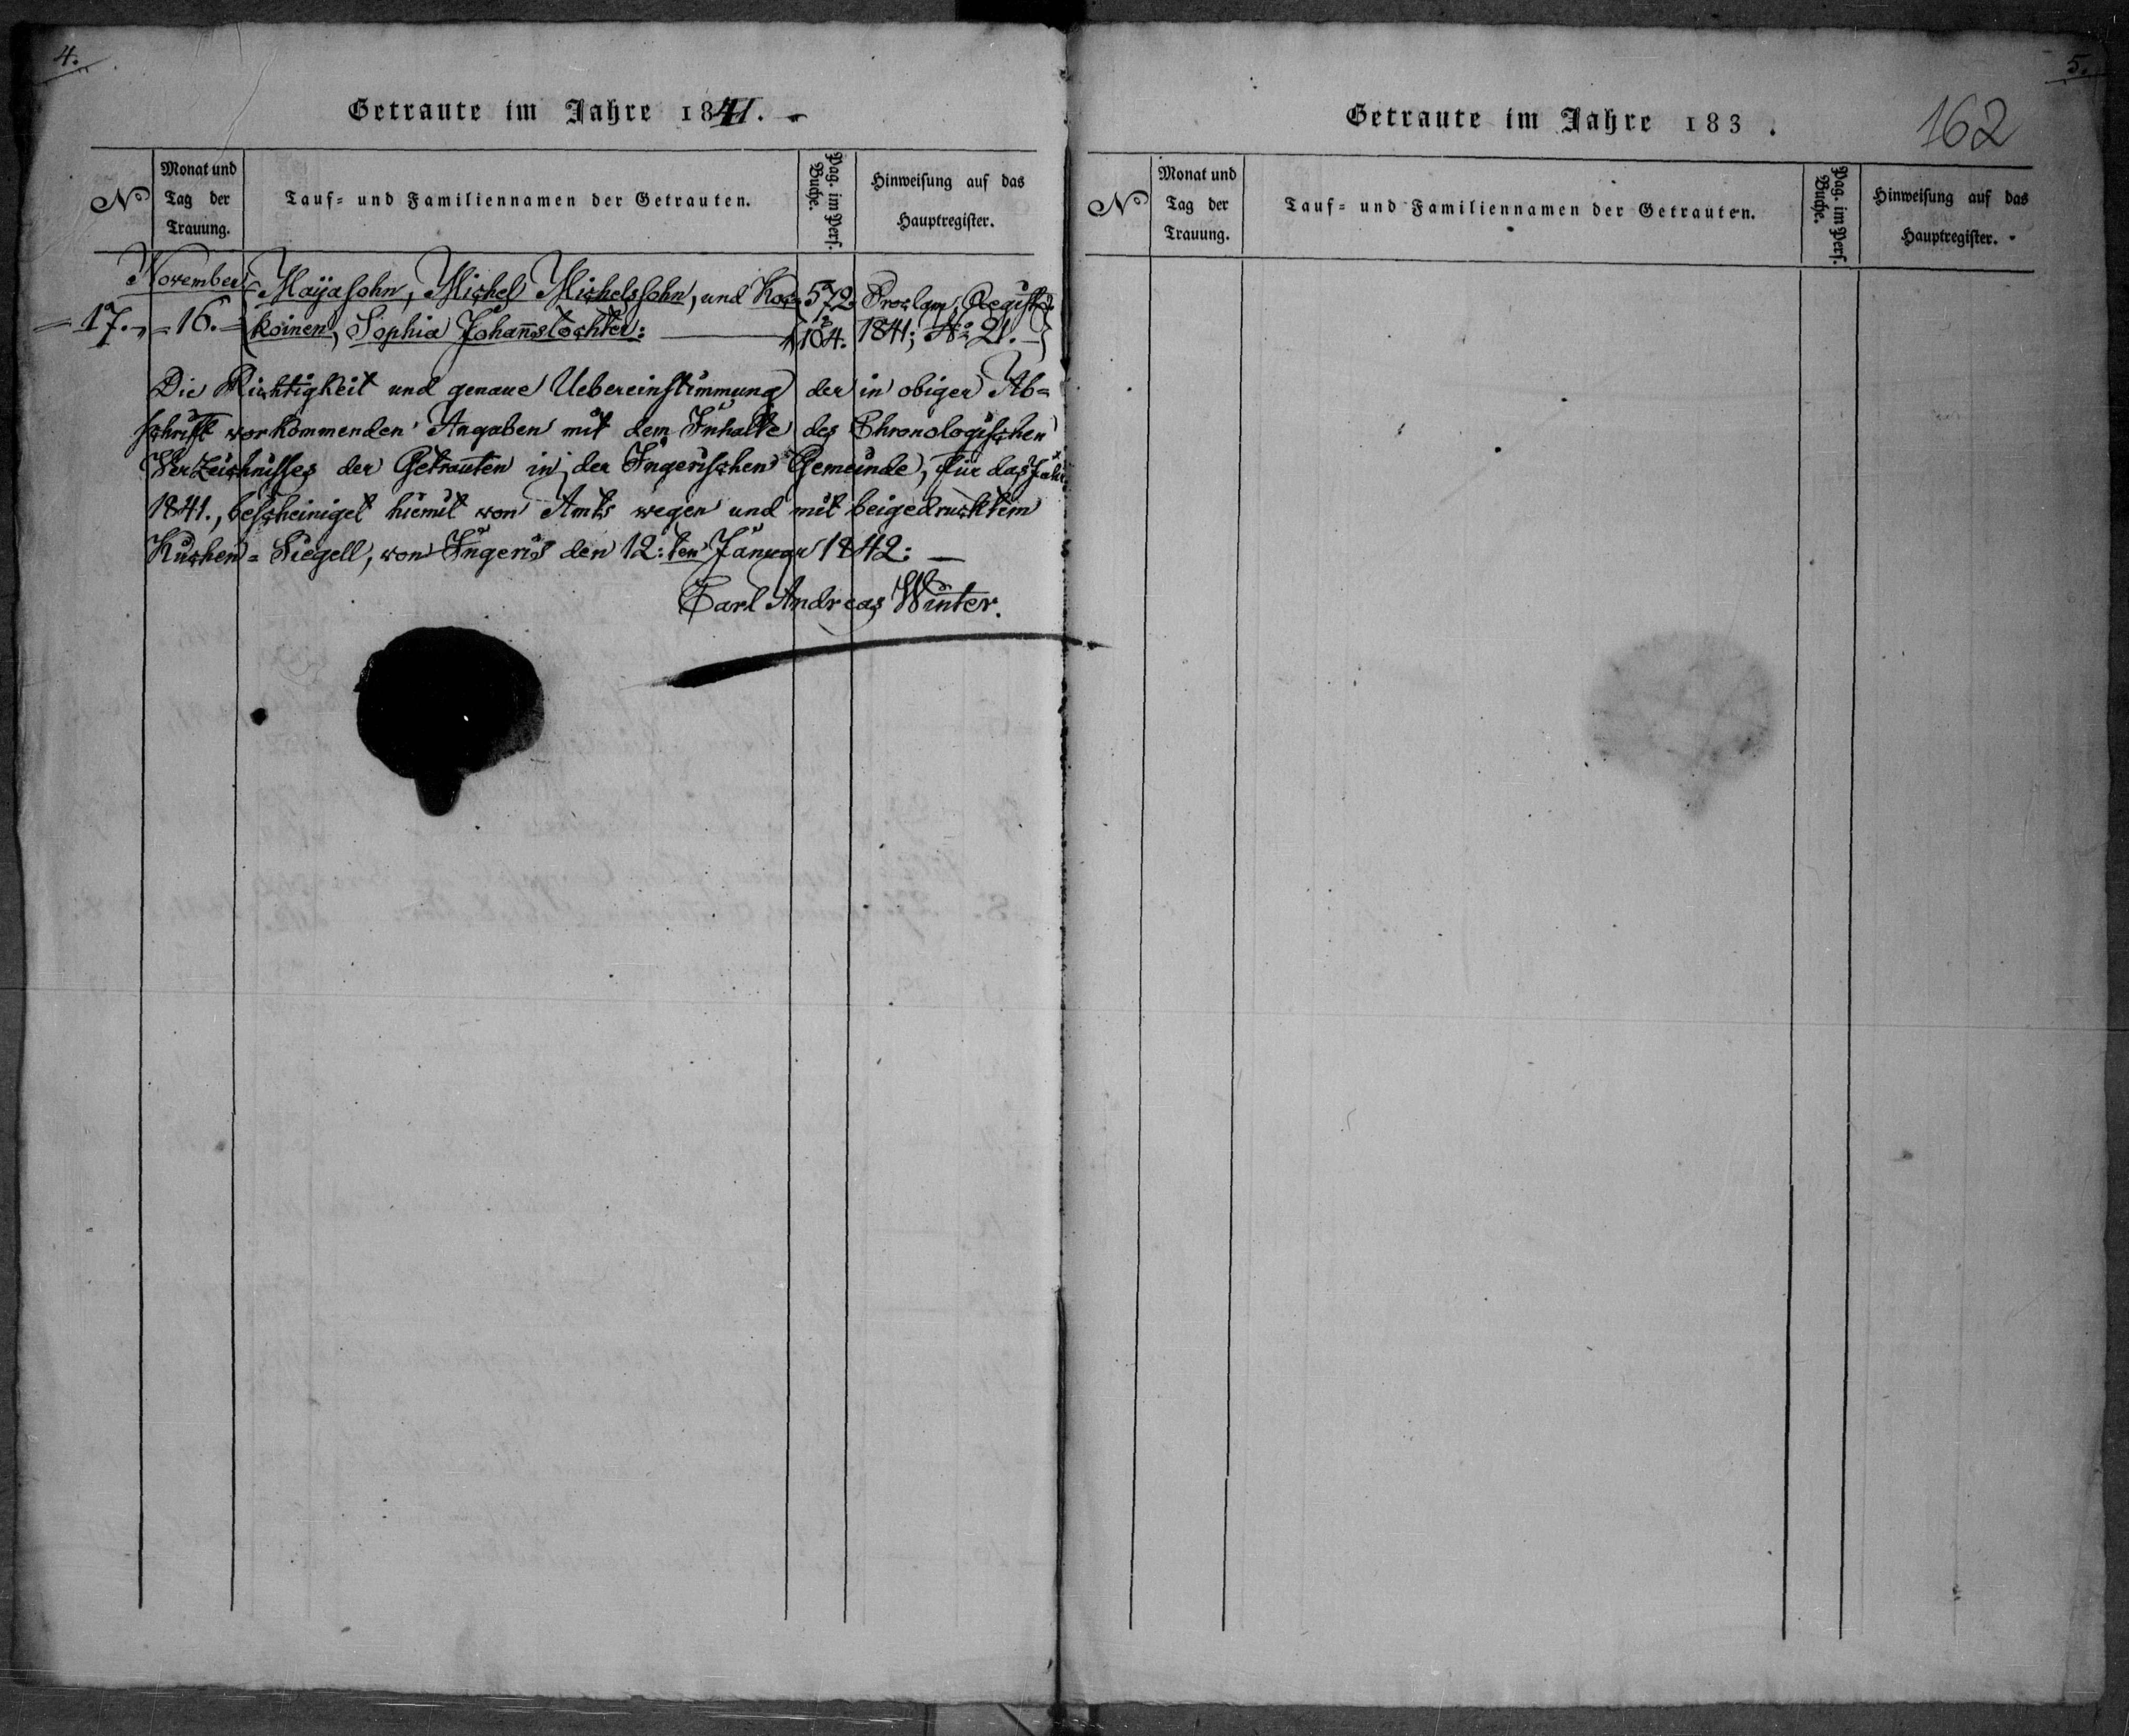 4.
Getraute im Jahre 1841.
No
Monat und
Tag der
Trauung.
Tauf- und Familiennamen der Getrauten.
Pag. im Pers.
Buche.
Hinweisung auf das
Hauptregister.
November
17. 16.
Mayasohn, Michel Michelssohn, und Kos- 572. Proclam. Regist.
koinen, Sophia Johannstochter: 104. 1841; No 21.
Die Richtigkeit und genaue Uebereinstimmung der in obiger Ab=
schrift vorkommenden Angaben mit dem Inhalte des Chronologischen
Verzeichnisses der Getrauten in der Ingerischen Gemeinde, für das Jahr
1841., bescheiniget hiemit von Amts wegen und mit beigedrucktem
Kirchen=Siegell, von Ingeris den 12:ten Januar 1842:
Carl Andreas Winter.
5.
162
Getraute im Jahre 183 .
No
Monat und
Tag der
Trauung.
Tauf- und Familiennamen der Getrauten.
Pag. im Pers.
Buche.
Hinweisung auf das
Hauptregister.